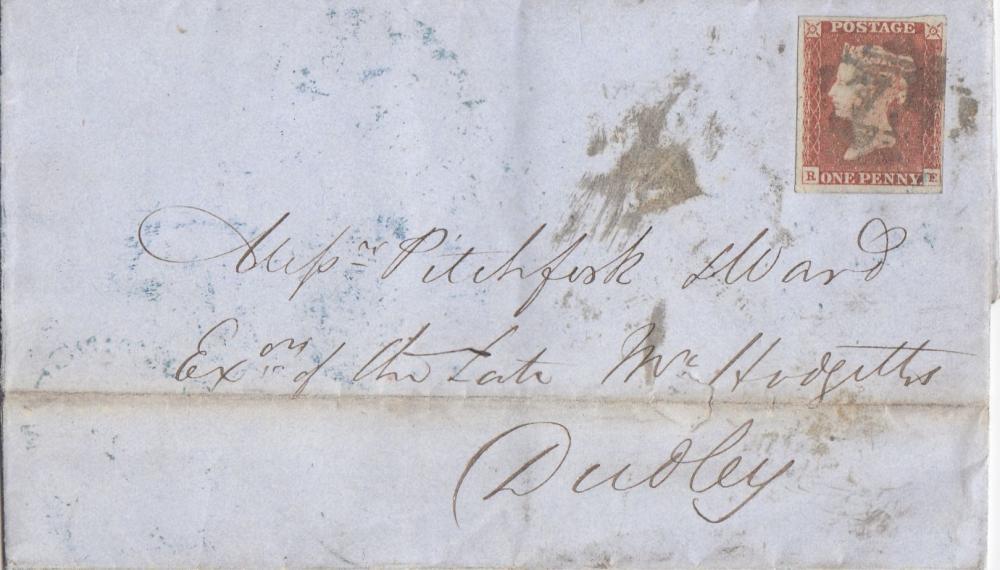 POSTAGE
R ONE PENNY. E
Messrs Pitchfork & Ward
Exors of the Late Mr Hodgetts
Dudley